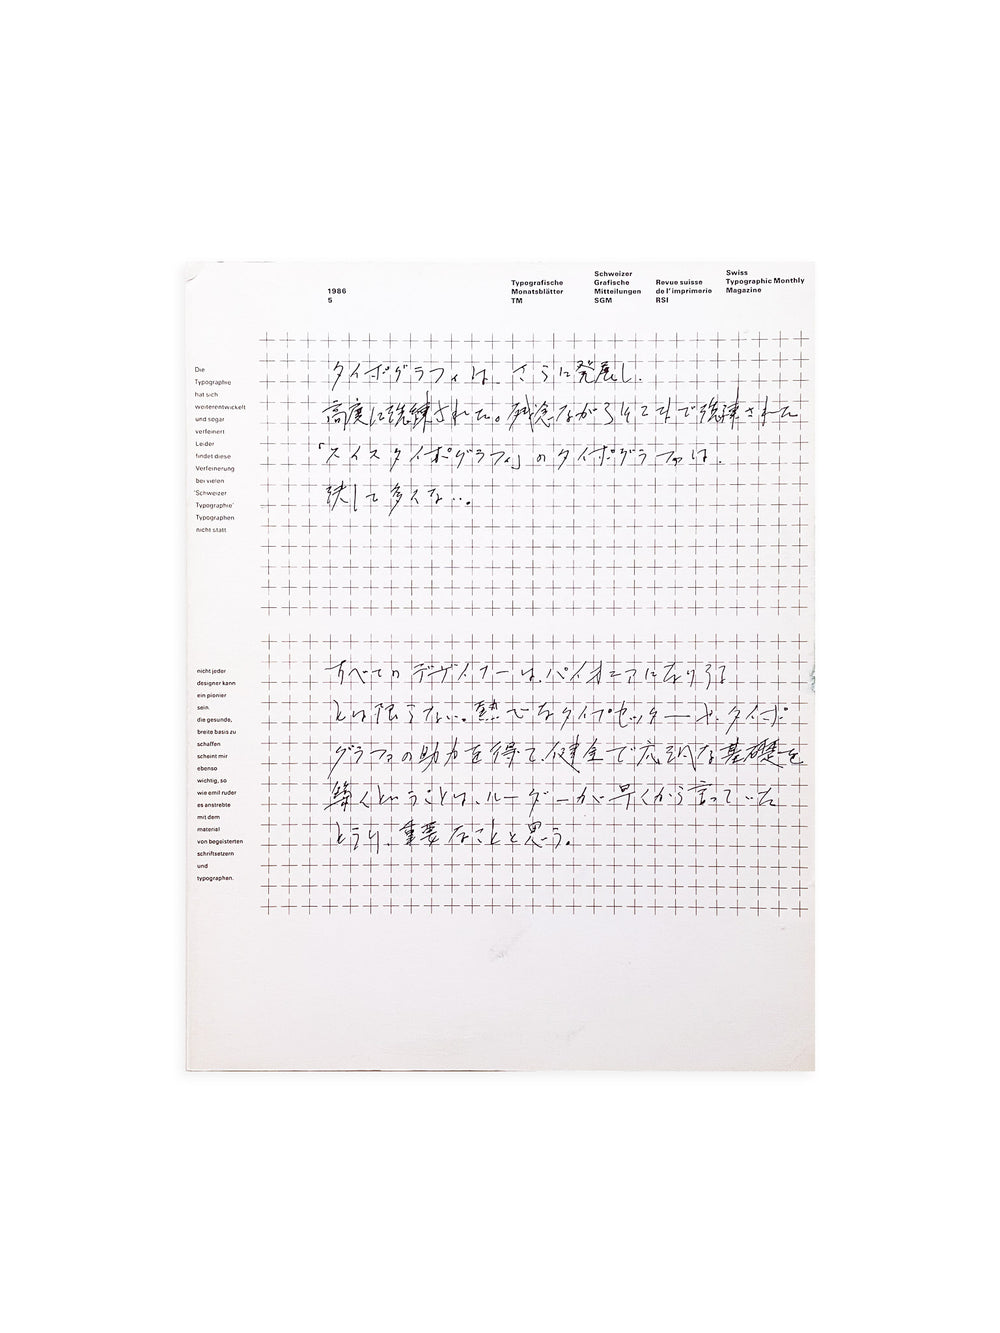 1986
5
Typografische
Monatsblätter
TM
Schweizer
Grafische
Mitteilungen
SGM
Revue suisse
de l'imprimerie
RSI
Swiss
Typographic Monthly
Magazine
Die
Typographie
hat sich
weiterentwickelt
und sogar
verfeinert
Leider
findet diese
Verfeinerung
bei vielen
'Schweizer
Typographie'
Typographen
nicht statt
タイポグラフィは、さらに発展し、
高度に洗練された。残念ながらそこまで洗練された
「スイスタイポグラフィ」のタイポグラファは、
決して多くない。
nicht jeder
designer kann
ein pionier
sein.
die gesunde,
breite basis zu
schaffen
scheint mir
ebenso
wichtig, so
wie emil ruder
es anstrebte
mit dem
material
von begeisterten
schriftsetzern
und
typographen.
すべてのデザイナーは、パイオニアになりうる
とは限らない。熱心なタイプセッターや、タイポ
グラファの助力を得て、健全で広汎な基礎を
築くということは、ルーダーが早くから言っていた
とうり、重要なことと思う。